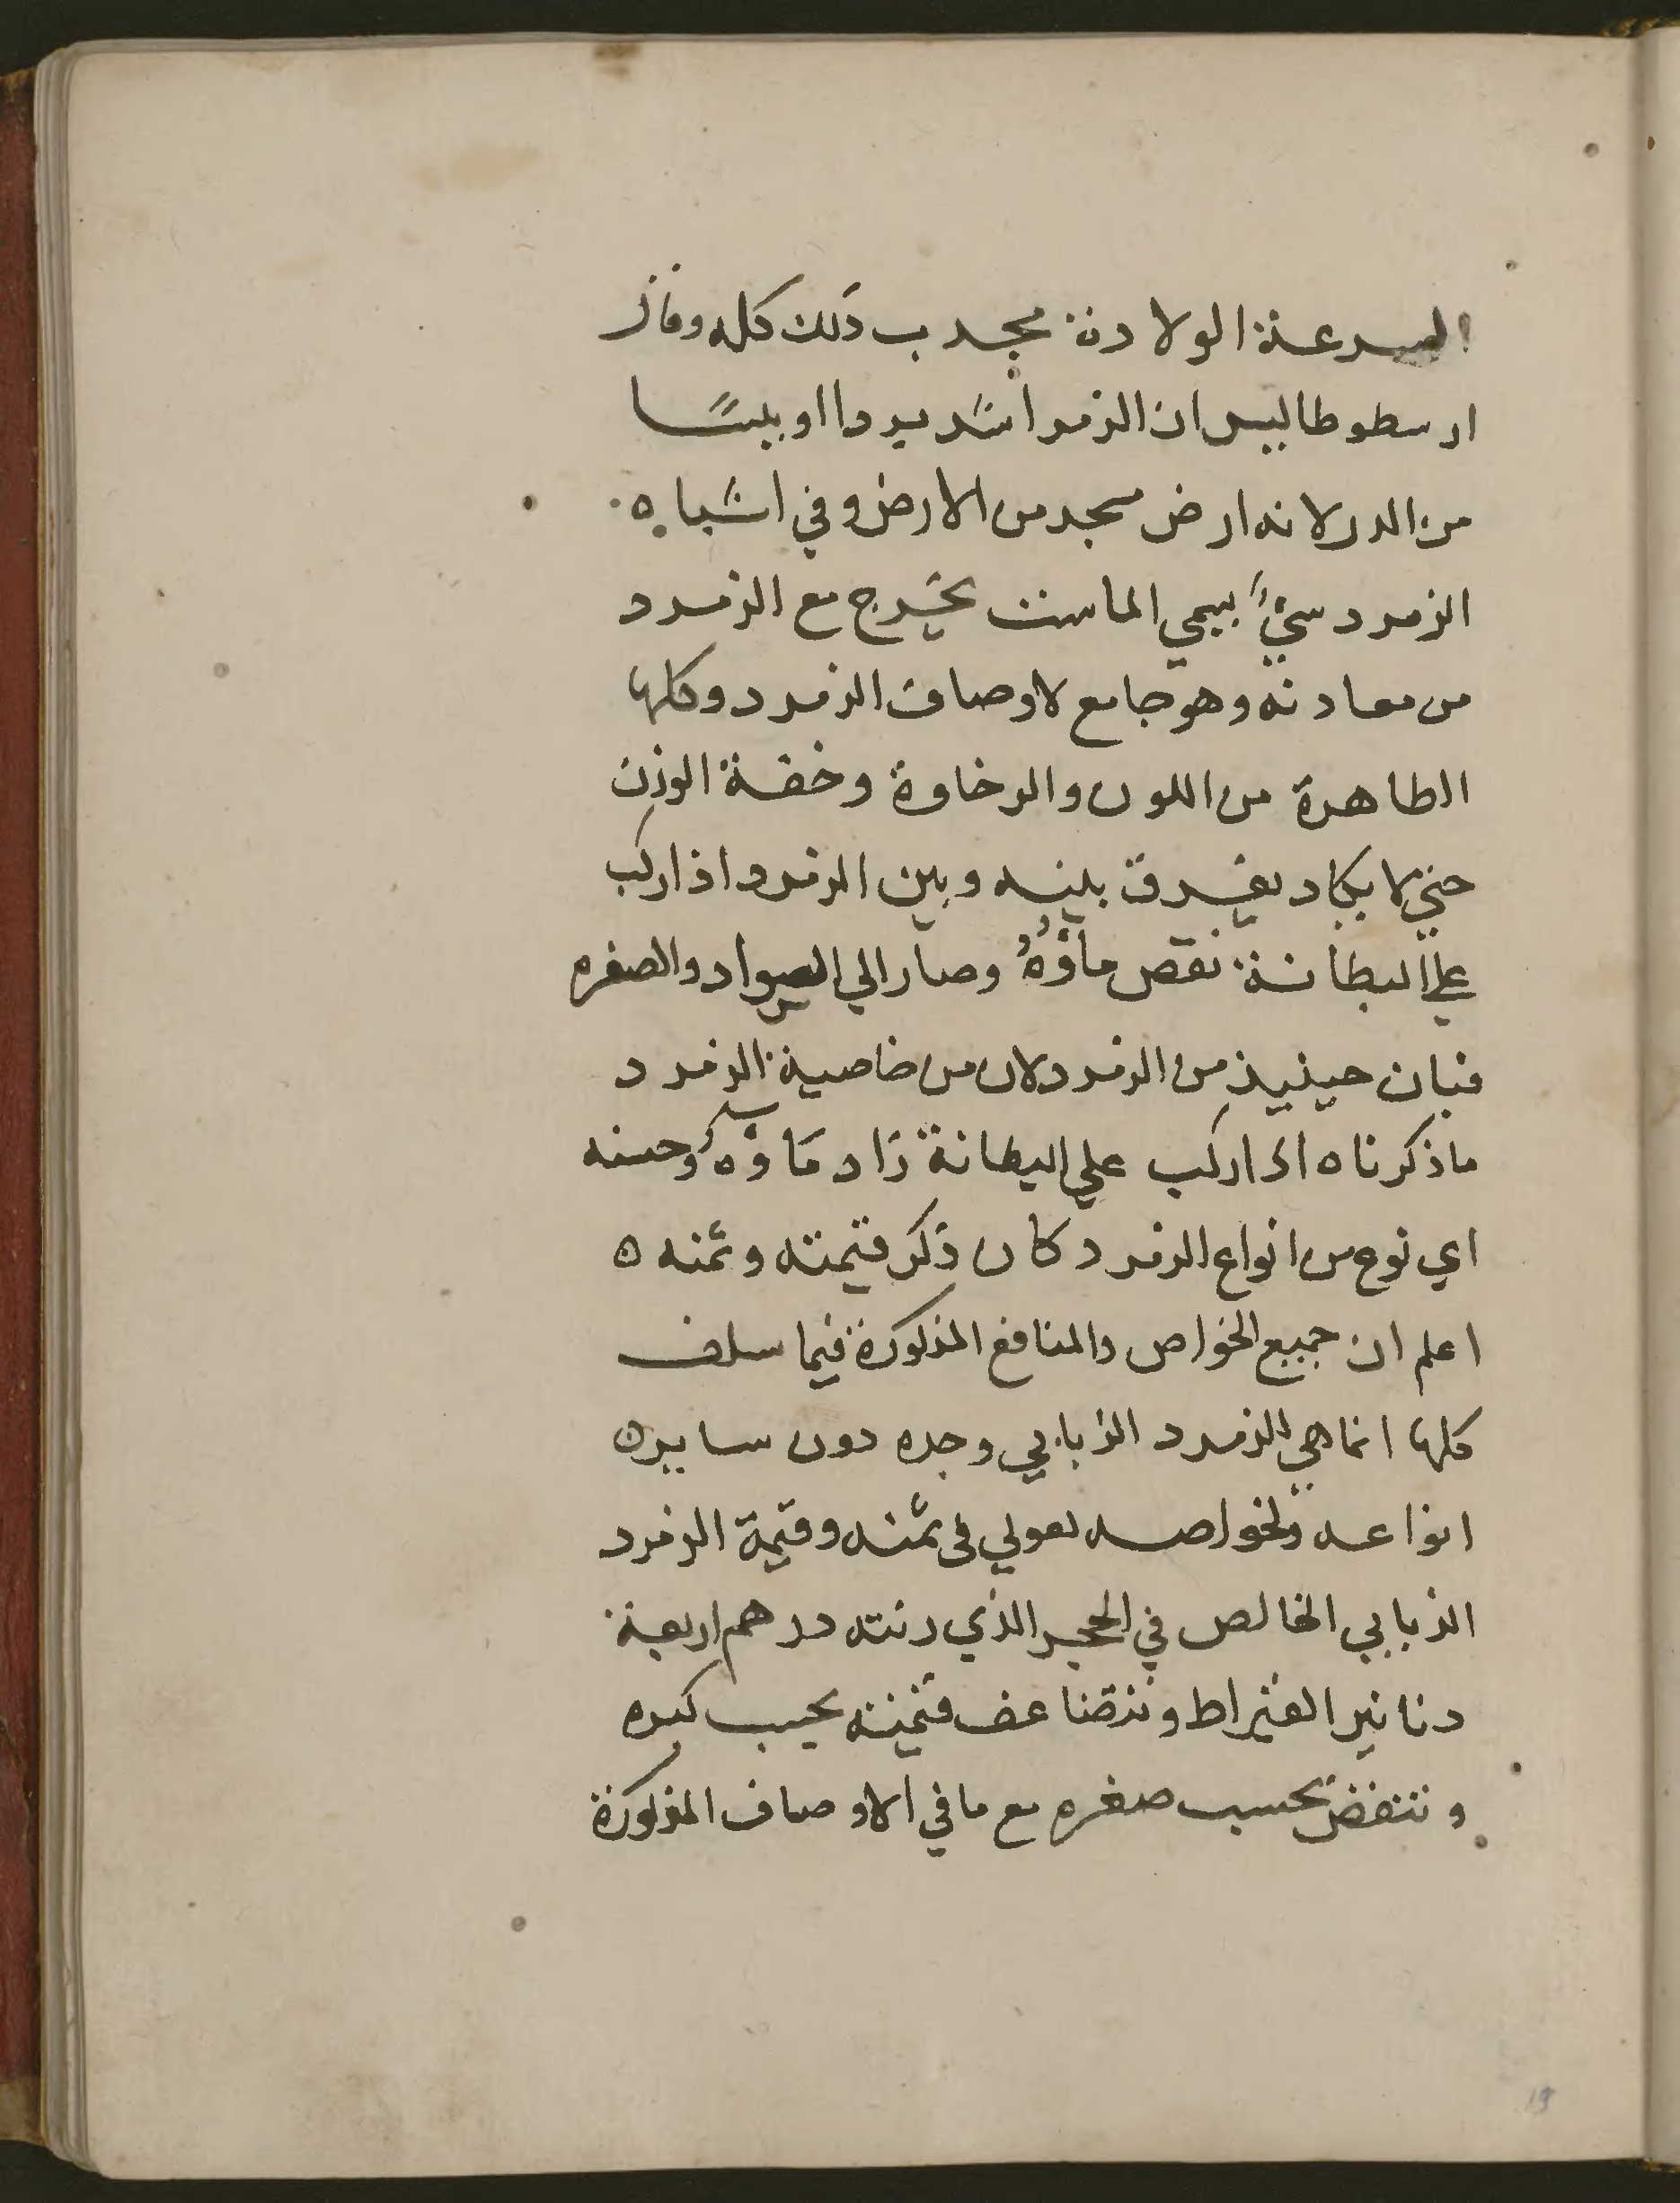 السرعة الولادة مجرب ذلك كله وقال
ارسطوطاليس ان الزمرد اشد بردا او يبسا
من الدر لانه ارض محمد من الارض وفي اشباه
الزمرد شيء يسمي الماست يخرج مع الزمرد
من معادنه وهو جامع لاوصاف الزمرد وكلها
الطاهرة من اللون والرخاوة وخفة الوزن
حتي لا يكاد يفرق بينه وبين الزمرد واذا ركب
علي البطانة نقص ماؤه وصار الي السواد والصفره
فبان حينيذ من الزمرد لان من خاصية الزمرد
ماذكرناه اذا ركب علي البطانة زاد ماؤه وحسنه
اي نوع من انواع الزمرد كان ذكر قيمته وثمنه ه
اعلم ان جميع الخواص والمنافع المذكورة فيما سلف
كلها انما هي للزمرد الذبابي وحده دون سايره
انواعه ولخواصه لعولي في ثمنه وقيمة الزمرد
الذبابي الخالص في الحجر الذي زنته درهم اربعة
دنانير القيراط وتتضاعف قيمته بحسب كبره
وتنقض بحسب صغره مع ما في الاوصاف المذكورة
19